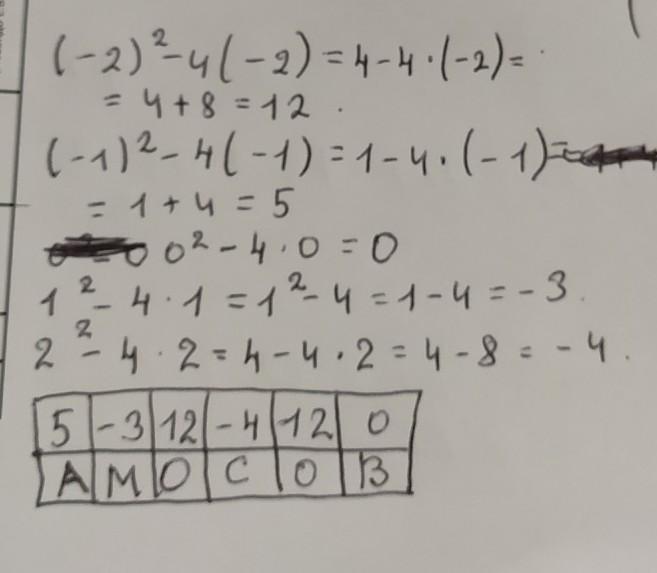 (-2)²-4(-2)=4-4·(-2)=
=4+8=12.
(-1)²-4(-1)=1-4·(-1)=
=1+4=5
0²-4·0=0
1²-4·1=1²-4=1-4=-3.
2²-4·2=4-4·2=4-8=-4.
5 -3 12 -4 12 0
А М О С О В